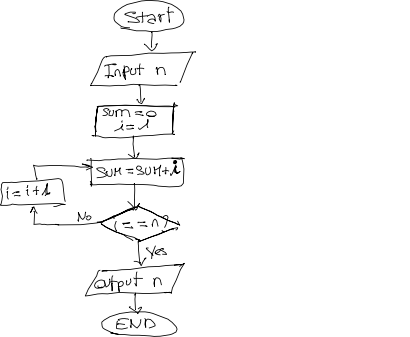 Start
Input n
sum=0
i=1
SUM=SUM+i
i=i+1
No
(==n)
Yes
output n
END